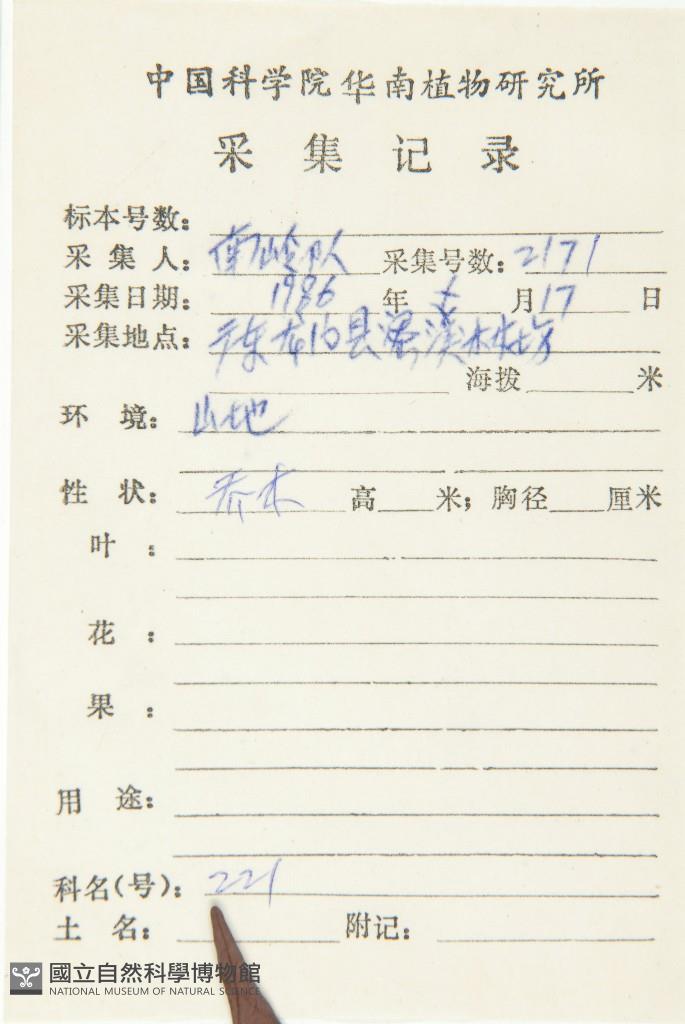 中国科学院华南植物研究所
采集记录
标本号数:
采集人: 南岭队 采集号数: 2171
采集日期: 1986 年 月 17 日
采集地点: 广东 县 溪林场
海拨 米
环境: 山地
性状: 乔木 高 米; 胸径 厘米
叶:
花:
果:
用途:
科名(号): 221
土名: 附记:
國立自然科學博物館
NATIONAL MUSEUM OF NATURAL SCIENCE